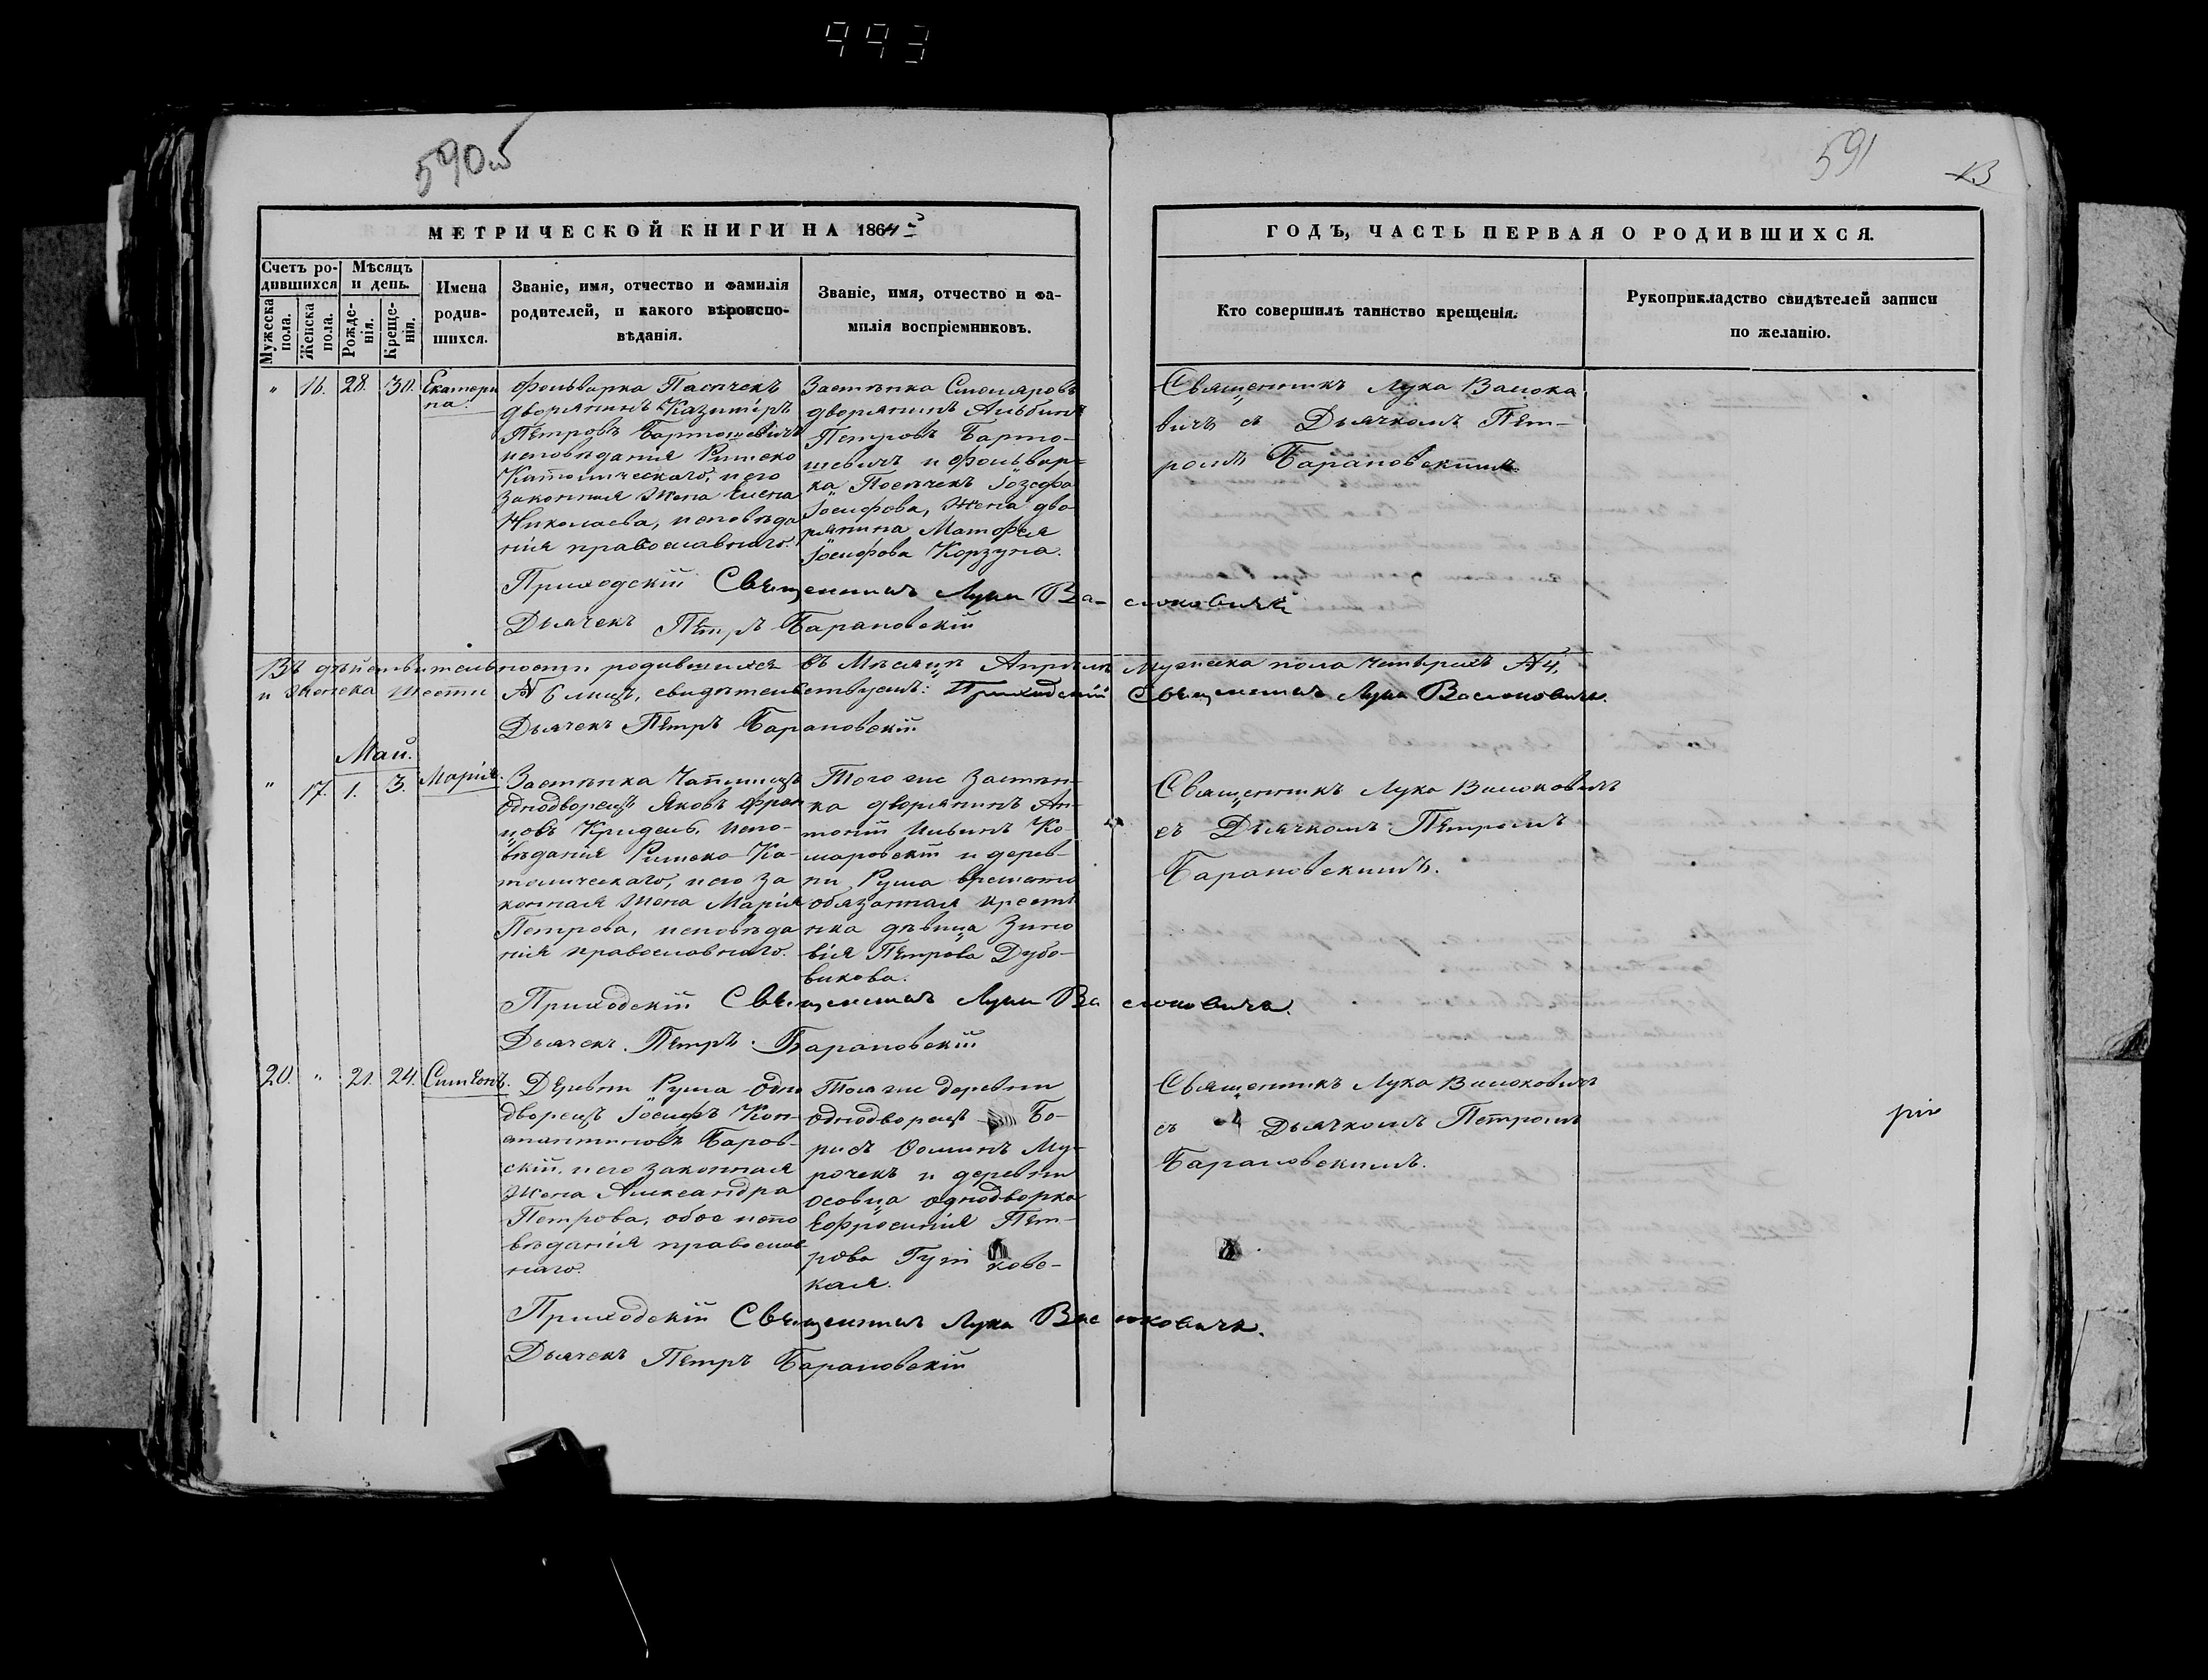 993
590об
591
13
МЕТРИЧЕСКОЙ КНИГИ НА 1864й
ГОДЪ, ЧАСТЬ ПЕРВАЯ О РОДИВШИХСЯ.
Счетъ ро-
дившихся
Мѣсяцъ
и день.
Мужеска
пола.
Женска
пола.
Рожде-
нія.
Креще-
нія.
Имена
родив-
шихся.
Званіе, имя, отчество и фамилія
родителей, и какого вѣроиспо-
вѣданія.
Званіе, имя, отчество и фа-
милія воспріемниковъ.
Кто совершилъ таинство крещенія.
Рукоприкладство свидѣтелей записи
по желанію.
" 16. 28. 30. Екатери
на.
Фольварка Пасѣчекъ
дворянинъ Казиміръ
Петровъ Бартошевичъ
исповѣданія Римско
Католическаго, и его
законная жена Елена
Николаева, исповѣда
нія православнаго.
Застѣнка Смоляровъ
дворянинъ Альбинъ
Петровъ Барто-
шевичъ и фольвар-
ка Посѣчекъ Іозефа
Іосифова, жена дво-
рянина Матфея
Іосифова Корзуна.
Священникъ Лука Васюко
вичъ съ Дьячкомъ Пет-
ромъ Барановскимъ
Приходскій Священникъ Лука Васюковичъ
Дьячекъ Петръ Барановскій
Въ дѣйствительности родившихся въ Мѣсяцѣ Апрѣлѣ мужеска пола четырехъ №4,
и женска шести №6 лицъ, свидѣтельствуемъ: Приходскій Священникъ Лука Васюковичъ.
Дьячекъ Петръ Барановскій
Май.
" 17. 1. 3. Марія.
Застѣнка Чаплицъ
однодворецъ Яковъ Фран
цовъ Кридель, испо-
вѣданія Римско-Ка-
толическаго, и его за
конная жена Марія
Петрова, исповѣда
нія православнаго.
Того же застѣн-
ка дворянинъ Ан-
тоній Ильинъ Ко-
маровскій и дерев-
ни Руша временно
обязанная крестья
нка дѣвица Зино
вія Петрова Дубо-
викова.
Священникъ Лука Васюковичъ
съ Дьячкомъ Петромъ
Барановскимъ.
Приходскій Священникъ Лука Васюковичъ.
Дьячекъ Петръ Барановскій
20. " 21. 24. Симеонъ.
Деревни Руша одно
дворецъ Іосифъ Кон-
стантиновъ Баров-
скій, и его законная
жена Александра
Петрова, обое испо
вѣданія православ
наго.
Той же деревни
однодворецъ Бо-
рисъ Ѳоминъ Му-
рочекъ и деревни
Осовца однодворка
Ефросинія Пет-
рова Гут ковс-
кая.
Священникъ Лука Васюковичъ
съ Дьячкомъ Петромъ
Барановскимъ.
Приходскій Священникъ Лука Васюковичъ.
Дьячекъ Петръ Барановскій